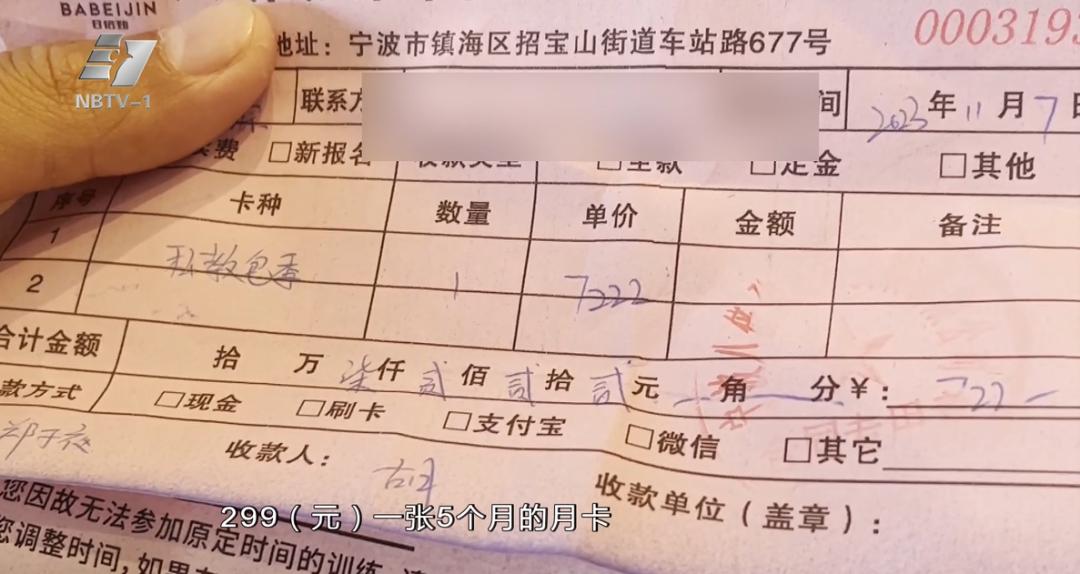 BABEIJIN
NBTV-1
地址：宁波市镇海区招宝山街道车站路677号
000319
联系方 间 2023年11月7日
续费 □新报名 收款类型 □全款 □定金 □其他
序号 卡种 数量 单价 金额 备注
1
2 私教包季 1 7222
合计金额 拾 万 柒仟 贰佰 贰拾 贰元 角 分￥：
款方式 □现金 □刷卡 □支付宝 □微信 □其它
收款人：
收款单位（盖章）：
299（元）一张5个月的月卡
您因故无法参加原定时间的训练
您调整时间，如果